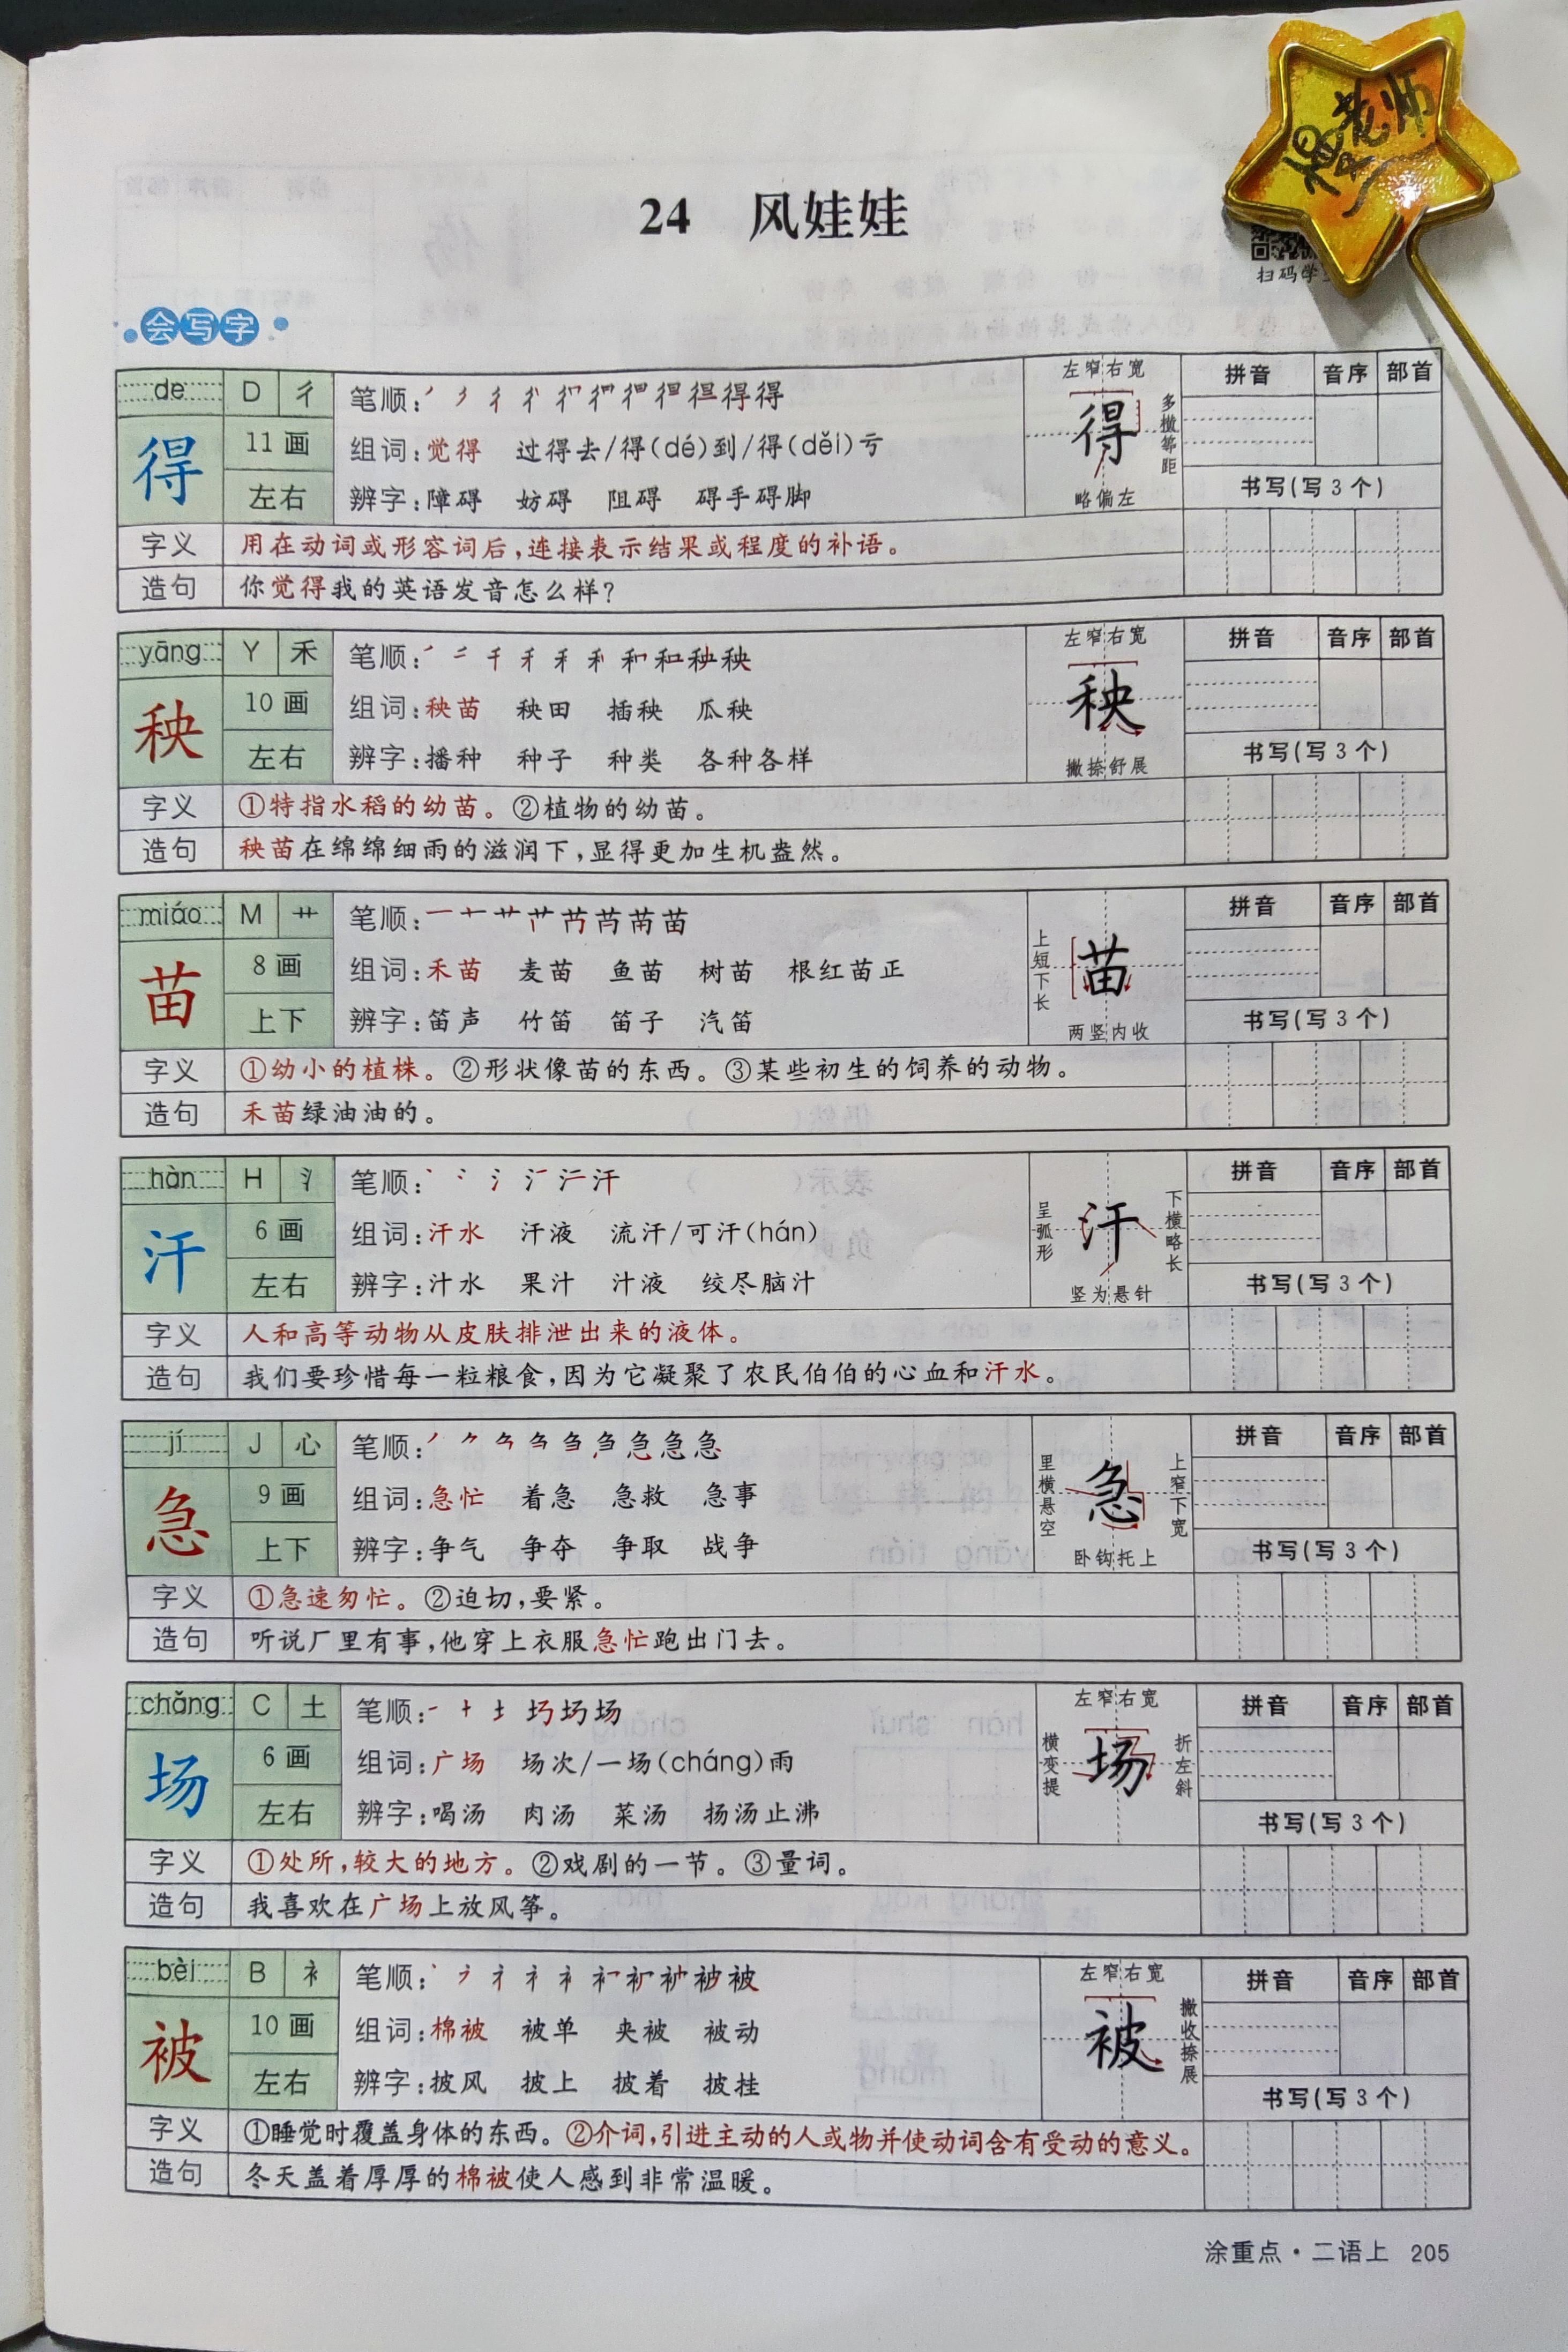 24 风娃娃
扫码学
会写字
de D 彳 笔顺:
得 11画 组词:觉得 过得去/得(dé)到/得(děi)亏
左右 辨字:障碍 妨碍 阻碍 碍手碍脚
左窄右宽
得
多横等距
略偏左
拼音 音序 部首
书写(写3个)
字义 用在动词或形容词后,连接表示结果或程度的补语。
造句 你觉得我的英语发音怎么样?
yāng Y 禾 笔顺:
秧 10画 组词:秧苗 秧田 插秧 瓜秧
左右 辨字:播种 种子 种类 各种各样
左窄右宽
秧
撇捺舒展
拼音 音序 部首
书写(写3个)
字义 ①特指水稻的幼苗。②植物的幼苗。
造句 秧苗在绵绵细雨的滋润下,显得更加生机盎然。
miáo M 艹 笔顺:
苗 8画 组词:禾苗 麦苗 鱼苗 树苗 根红苗正
上下 辨字:笛声 竹笛 笛子 汽笛
上短下长
苗
两竖内收
拼音 音序 部首
书写(写3个)
字义 ①幼小的植株。②形状像苗的东西。③某些初生的饲养的动物。
造句 禾苗绿油油的。
hàn H 氵 笔顺:
汗 6画 组词:汗水 汗液 流汗/可汗(hán)
左右 辨字:汁水 果汁 汁液 绞尽脑汁
呈弧形
汗
下横略长
竖为悬针
拼音 音序 部首
书写(写3个)
字义 人和高等动物从皮肤排泄出来的液体。
造句 我们要珍惜每一粒粮食,因为它凝聚了农民伯伯的心血和汗水。
jí J 心 笔顺:
急 9画 组词:急忙 着急 急救 急事
上下 辨字:争气 争夺 争取 战争
里横悬空
急
上窄下宽
卧钩托上
拼音 音序 部首
书写(写3个)
字义 ①急速匆忙。②迫切,要紧。
造句 听说厂里有事,他穿上衣服急忙跑出门去。
chǎng C 土 笔顺:
场 6画 组词:广场 场次/一场(cháng)雨
左右 辨字:喝汤 肉汤 菜汤 扬汤止沸
左窄右宽
横变提
场
折左斜
拼音 音序 部首
书写(写3个)
字义 ①处所,较大的地方。②戏剧的一节。③量词。
造句 我喜欢在广场上放风筝。
bèi B 衤 笔顺:
被 10画 组词:棉被 被单 夹被 被动
左右 辨字:披风 披上 披着 披挂
左窄右宽
被
撇收捺展
拼音 音序 部首
书写(写3个)
字义 ①睡觉时覆盖身体的东西。②介词,引进主动的人或物并使动词含有受动的意义。
造句 冬天盖着厚厚的棉被使人感到非常温暖。
涂重点·二语上 205